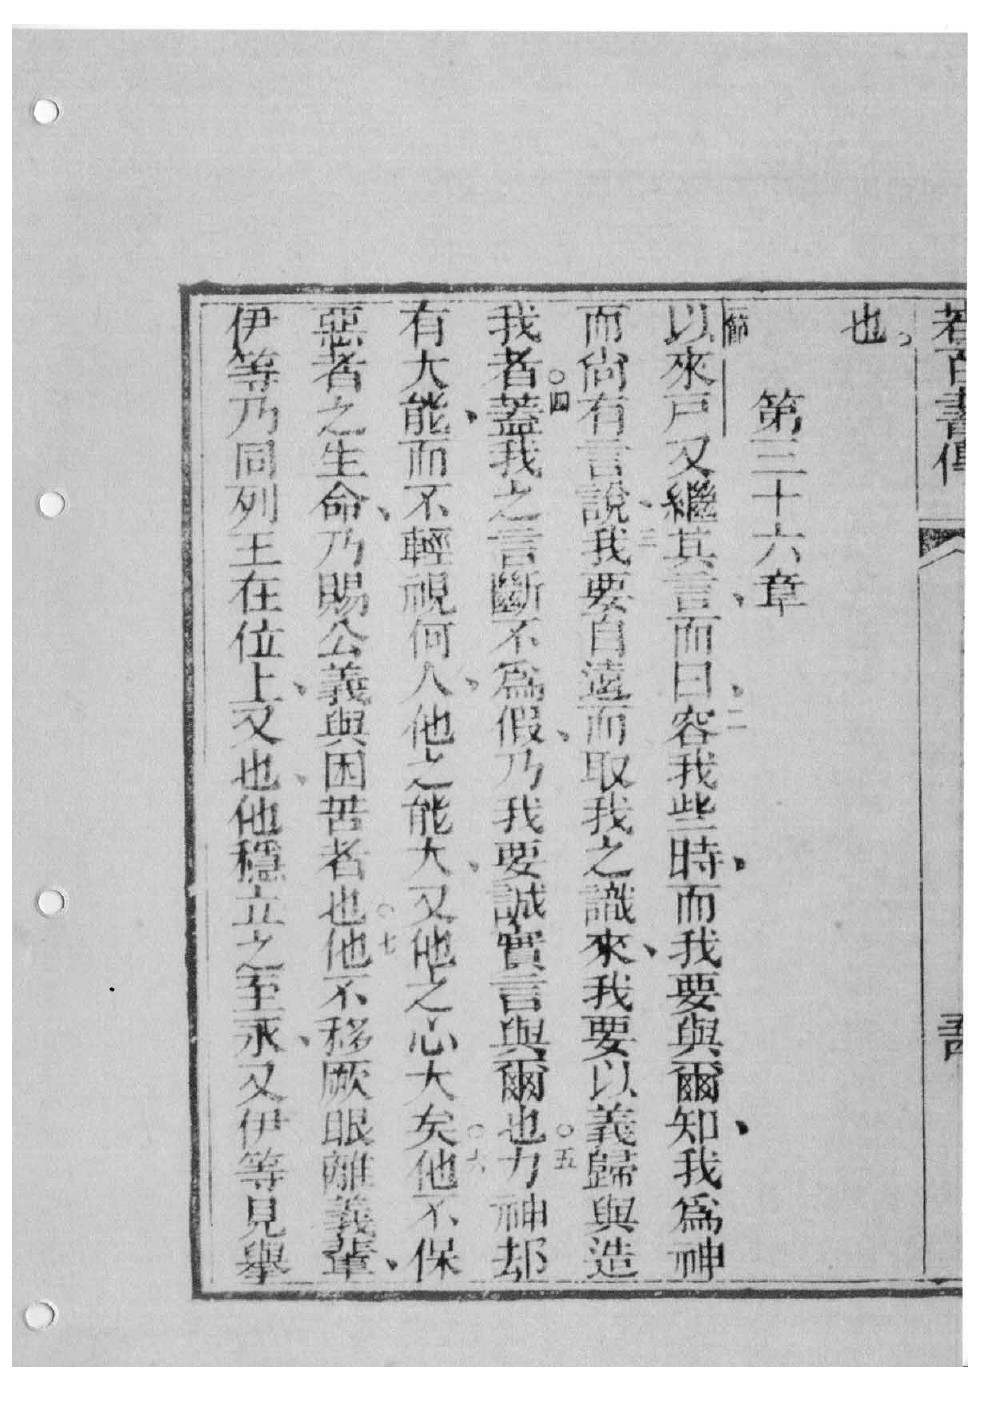 若百書傳
也。
第三十六章
一節以來戶又繼其言、而曰、二容我些時、而我要與爾知、我爲神
而尚有言說、三我要自遠而取我之識來、我要以義歸與造
我者。四蓋我之言斷不爲假、乃我要誠實言與爾也。五力神却
有大能、而不輕視何人、他之能大、又他之心大矣。六他不保
惡者之生命、乃賜公義與困苦者也。七他不移厥眼離義輩、
伊等乃同列王在位上、又也、他穩立之至永、又伊等見舉